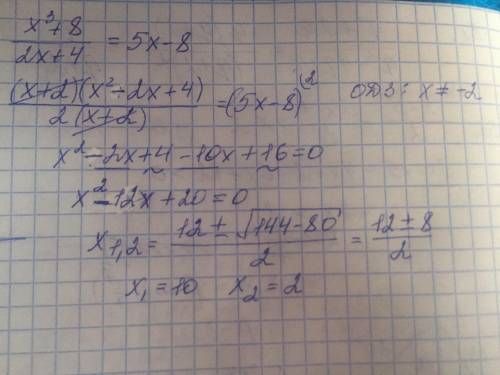 x³+8 / 2x+4 = 5x-8
(x+2)(x²-2x+4) / 2(x+2) = (5x-8)⁽² ОДЗ: x≠-2
x²-2x+4-10x+16=0
x²-12x+20=0
x₁,₂ = 12±√144-80 / 2 = 12±8 / 2
x₁=10 x₂=2